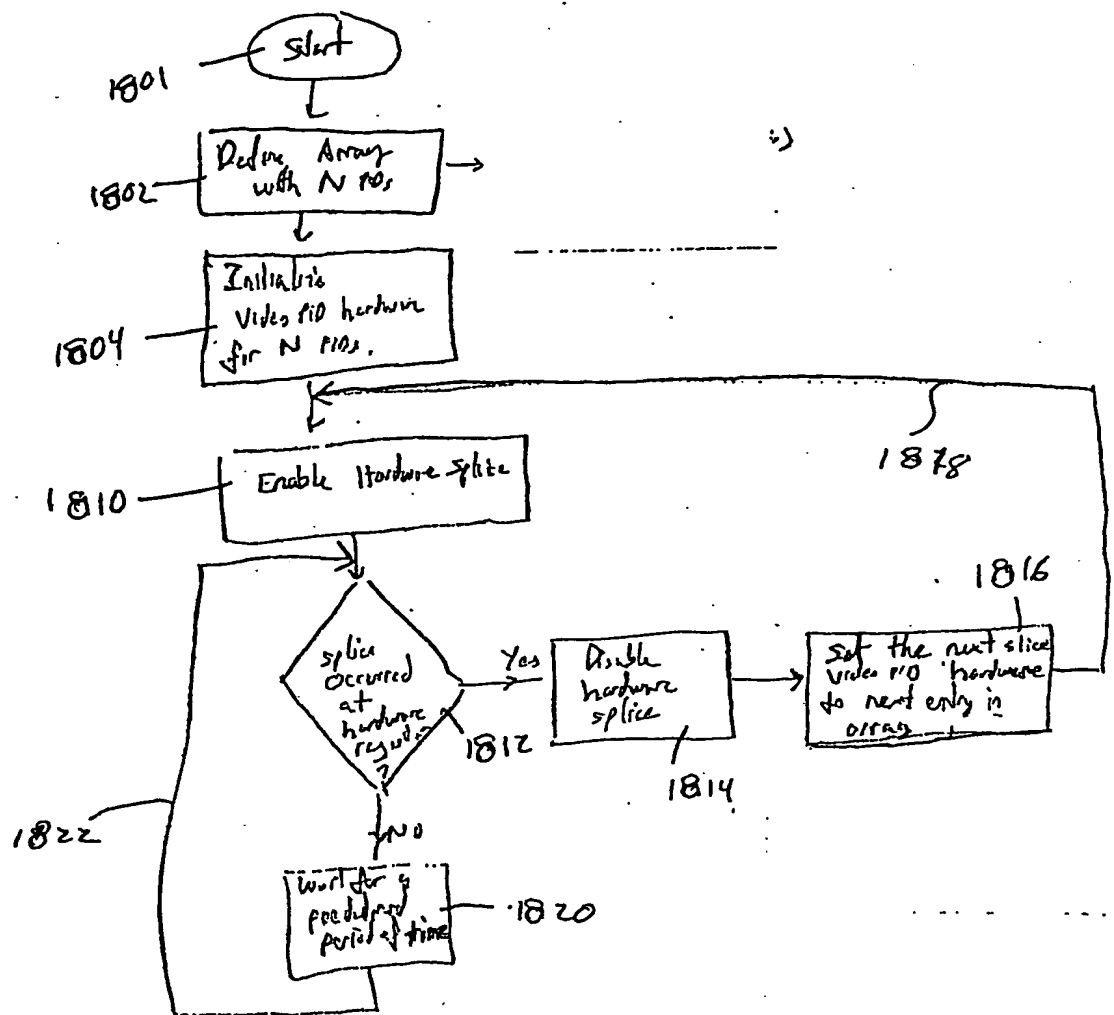 Start
1801
Define Array
with N PIDs
1802
Initialize
Video PID hardware
for N PIDs.
1804
1878
Enable Hardware splice
1810
1816
splice
occurred
at
hardware
?
Yes
1812
Disable
hardware
splice
1814
Set the next slice
video PID hardware
to next entry in
array
1822
NO
Wait for a
predefined
period of time
1820